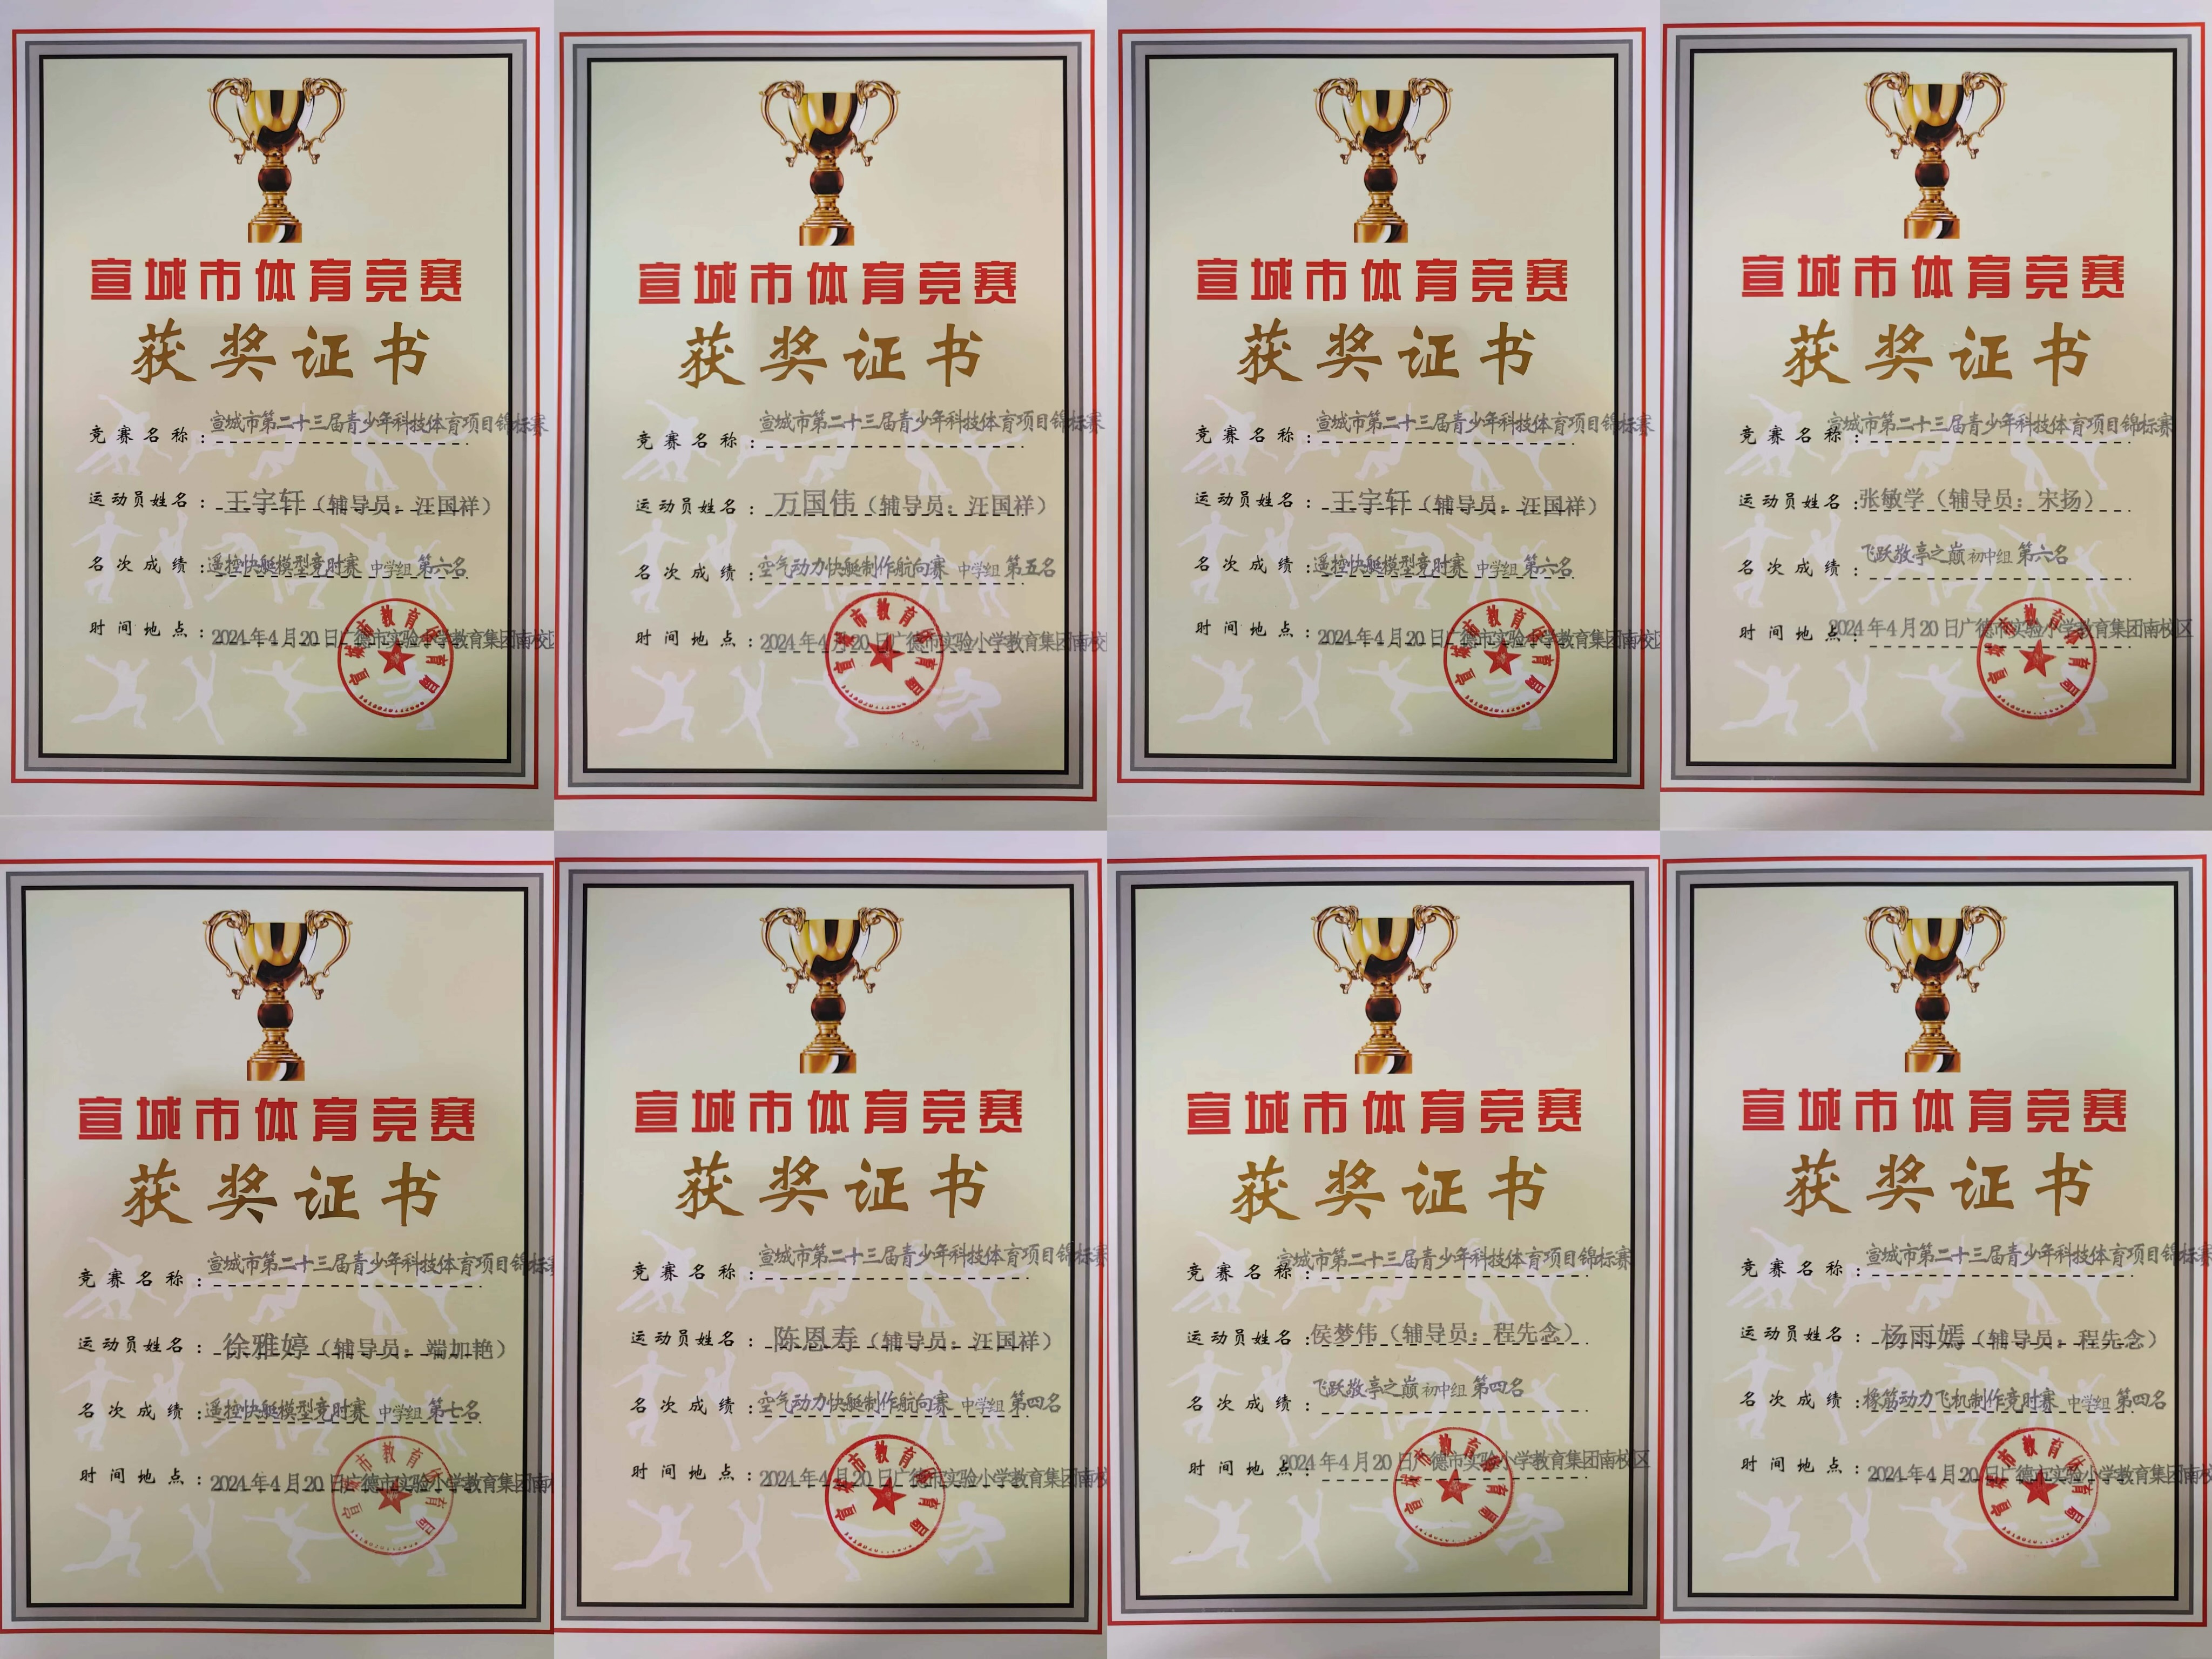 宣城市体育竞赛
获奖证书
竞赛名称：宣城市第二十三届青少年科技体育项目锦标赛
运动员姓名：王宇轩（辅导员：汪国祥）
名次成绩：遥控快艇模型竞时赛 中学组 第六名
时间地点：2024年4月20日广德市实验小学教育集团南校区
宣城市教育体育局
宣城市体育竞赛
获奖证书
竞赛名称：宣城市第二十三届青少年科技体育项目锦标赛
运动员姓名：万国伟（辅导员：汪国祥）
名次成绩：空气动力快艇制作航向赛 中学组 第五名
时间地点：2024年4月20日广德市实验小学教育集团南校
宣城市教育体育局
宣城市体育竞赛
获奖证书
竞赛名称：宣城市第二十三届青少年科技体育项目锦标赛
运动员姓名：王宇轩（辅导员：汪国祥）
名次成绩：遥控快艇模型竞时赛 中学组 第六名
时间地点：2024年4月20日广德市实验小学教育集团南校区
宣城市教育体育局
宣城市体育竞赛
获奖证书
竞赛名称：宣城市第二十三届青少年科技体育项目锦标赛
运动员姓名：张敏学（辅导员：宋扬）
名次成绩：飞跃敬亭之巅 初中组 第六名
时间地点：2024年4月20日广德市实验小学教育集团南校区
宣城市教育体育局
宣城市体育竞赛
获奖证书
竞赛名称：宣城市第二十三届青少年科技体育项目锦标赛
运动员姓名：徐雅婷（辅导员：端加艳）
名次成绩：遥控快艇模型竞时赛 中学组 第七名
时间地点：2024年4月20日广德市实验小学教育集团南
宣城市教育体育局
宣城市体育竞赛
获奖证书
竞赛名称：宣城市第二十三届青少年科技体育项目锦标赛
运动员姓名：陈恩寿（辅导员：汪国祥）
名次成绩：空气动力快艇制作航向赛 中学组 第四名
时间地点：2024年4月20日广德市实验小学教育集团南校
宣城市教育体育局
宣城市体育竞赛
获奖证书
竞赛名称：宣城市第二十三届青少年科技体育项目锦标赛
运动员姓名：侯梦伟（辅导员：程先念）
名次成绩：飞跃敬亭之巅 初中组 第四名
时间地点：2024年4月20日广德市实验小学教育集团南校区
宣城市教育体育局
宣城市体育竞赛
获奖证书
竞赛名称：宣城市第二十三届青少年科技体育项目锦标赛
运动员姓名：杨雨嫣（辅导员：程先念）
名次成绩：橡筋动力飞机制作竞时赛 中学组 第四名
时间地点：2024年4月20日广德市实验小学教育集团南校
宣城市教育体育局